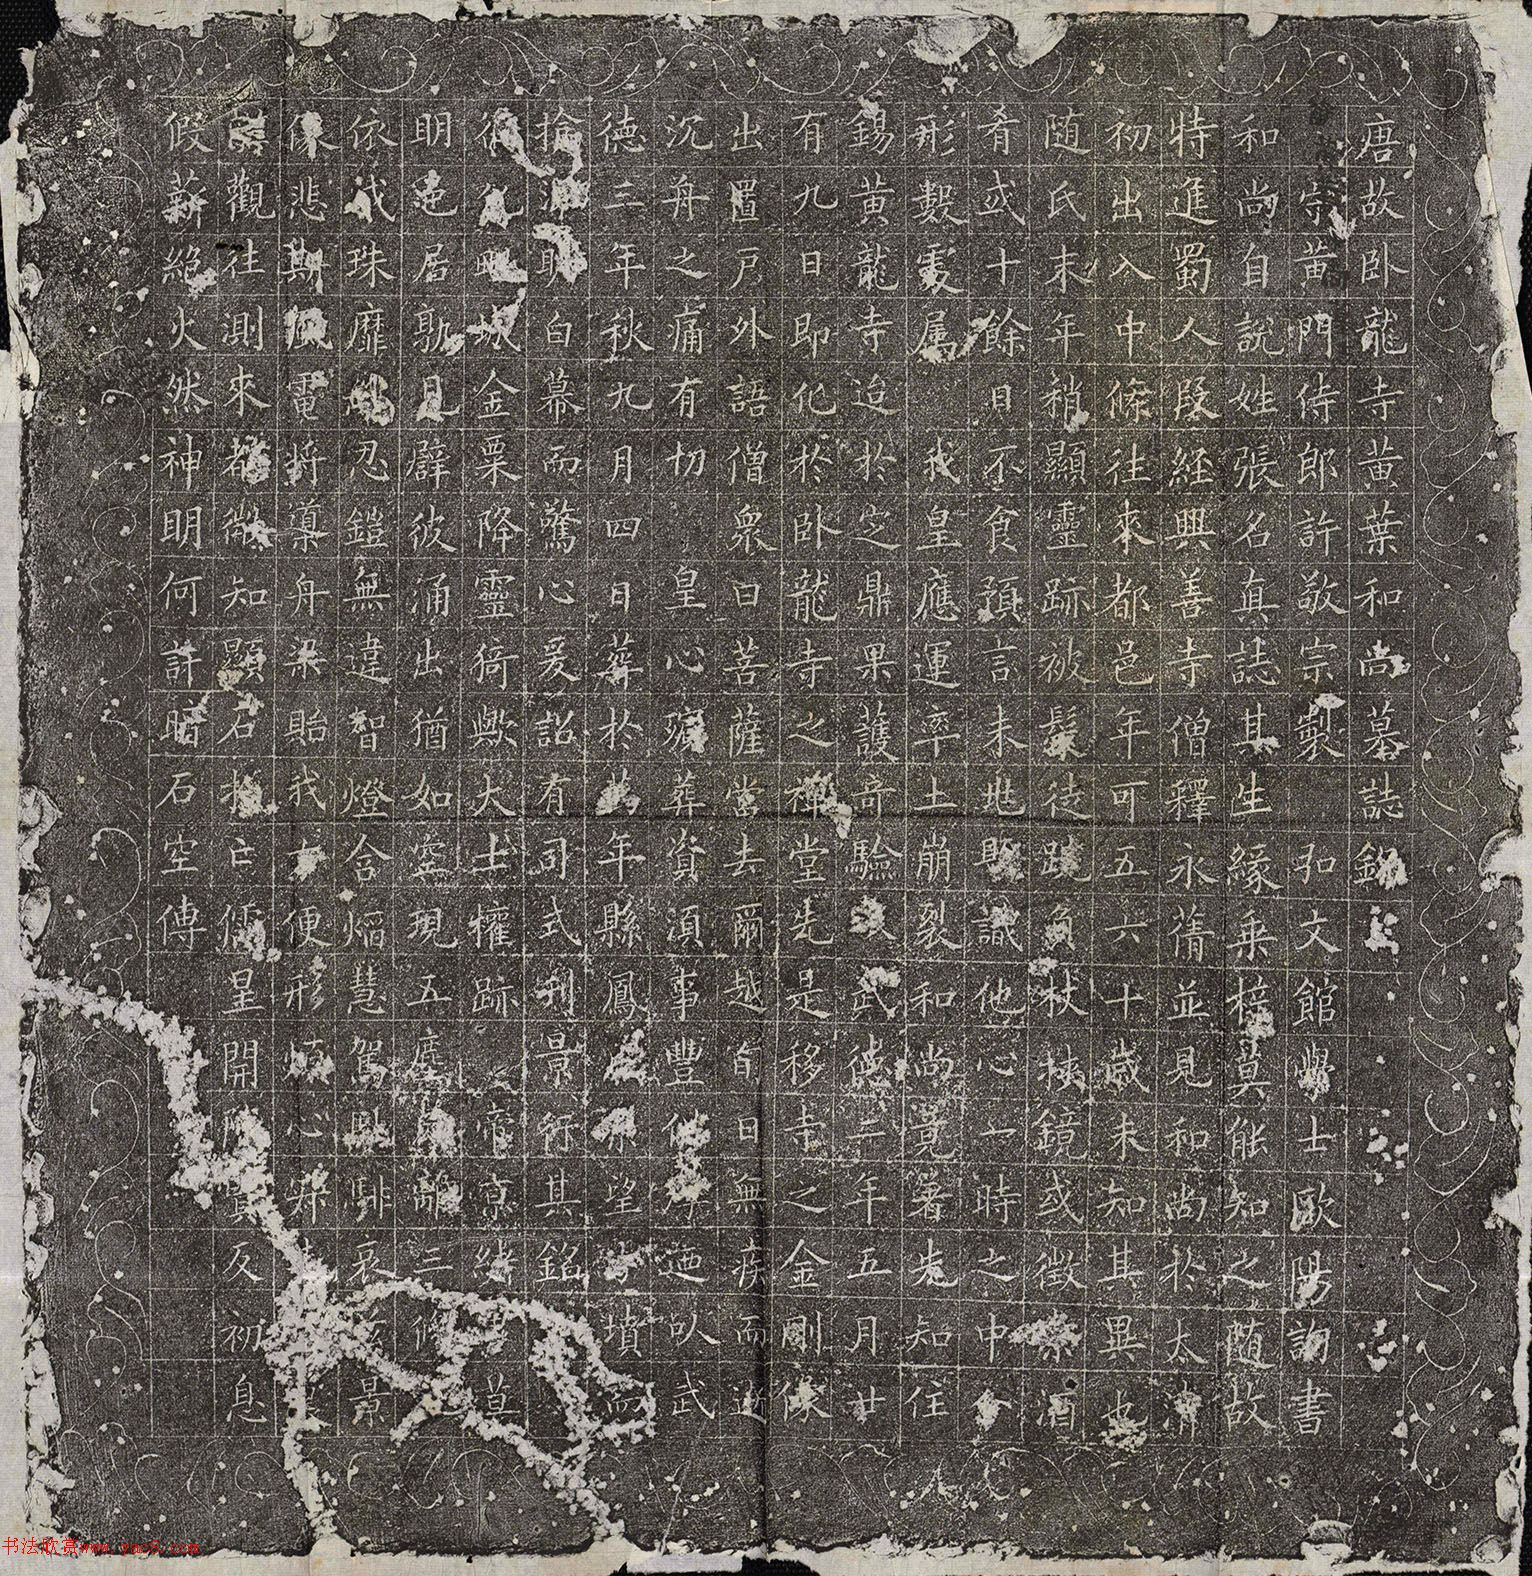 唐故卧龍寺黃葉和尚墓誌銘
宗黃門侍郎許敬宗製 弘文館學士歐陽詢書
和尚自說姓張名真誌其生緣乘梓莫能知之隨故
特進蜀人段經興善寺僧釋永蒨並見和尚於太清
初出入中條往來都邑年可五六十歲未知其異也
随氏末年稍顯靈跡被髮徒跣負杖挾鏡或徵索酒
肴或十餘日不食預言未兆題識他心一時之中分
形數處属 我皇應運率土崩裂和尚竟著先知住
錫黃龍寺迨於定鼎果護奇驗武德二年五月廿
有九日即化於卧龍寺之禪堂先是移寺之金剛像
出置戶外語僧衆曰菩薩當去爾越旬日無疾而逝
沉舟之痛有切 皇心殯葬資須事豐供厚迺以武
德三年秋九月四日葬於萬年縣鳳望墳而
白幕而驚心爰詔有司式刊景行其銘
金粟降靈猗歟大士權跡 帝京緒
明 色居勤 見礔彼涌出猶如空現五塵離三修
依戒珠靡忍鎧無違智燈含焰慧駕騑哀景
像悲斯風電將導舟梁貽我方便形煩心
觀往測來都微知顯石杯亡儒星開反初息
假薪絕火然神明何許暗石空傳
书法欣赏www.yac8.com